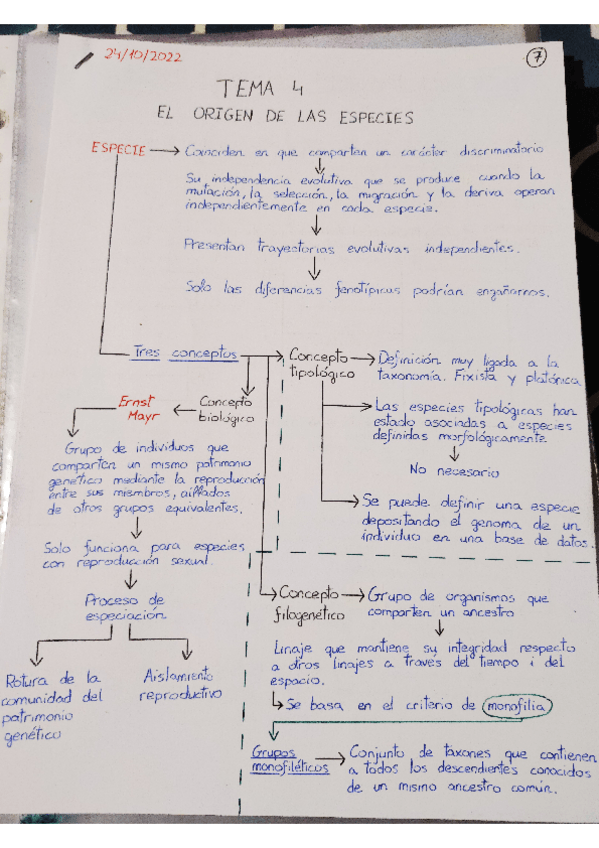 24/10/2022
7
TEMA 4
EL ORIGEN DE LAS ESPECIES
ESPECIE → Coinciden en que comparten un carácter discriminatorio
Su independencia evolutiva que se produce cuando la
mutación, la selección, la migración y la deriva operan
independientemente en cada especie.
Presentan trayectorias evolutivas independientes.
Solo las diferencias fenotípicas podrían engañarnos.
Tres conceptos
Concepto
tipológico
Definición muy ligada a la
taxonomía. Fixista y platónica
Las especies tipológicas han
estado asociadas a especies
definidas morfológicamente
No necesario
Se puede definir una especie
depositando el genoma de un
individuo en una base de datos.
Concepto
biológico
Ernst
Mayr
Grupo de individuos que
comparten un mismo patrimonio
genético mediante la reproducción
entre sus miembros, aislados
de otros grupos equivalentes.
Solo funciona para especies
con reproducción sexual.
Proceso de
especiación
Rotura de la
comunidad del
patrimonio
genético
Aislamiento
reproductivo
Concepto
filogenético
Grupo de organismos que
comparten un ancestro
Linaje que mantiene su integridad respecto
a otros linajes a través del tiempo i del
espacio.
Se basa en el criterio de monofilia
Grupos
monofiléticos
Conjunto de taxones que contienen
a todos los descendientes conocidos
de un mismo ancestro común.